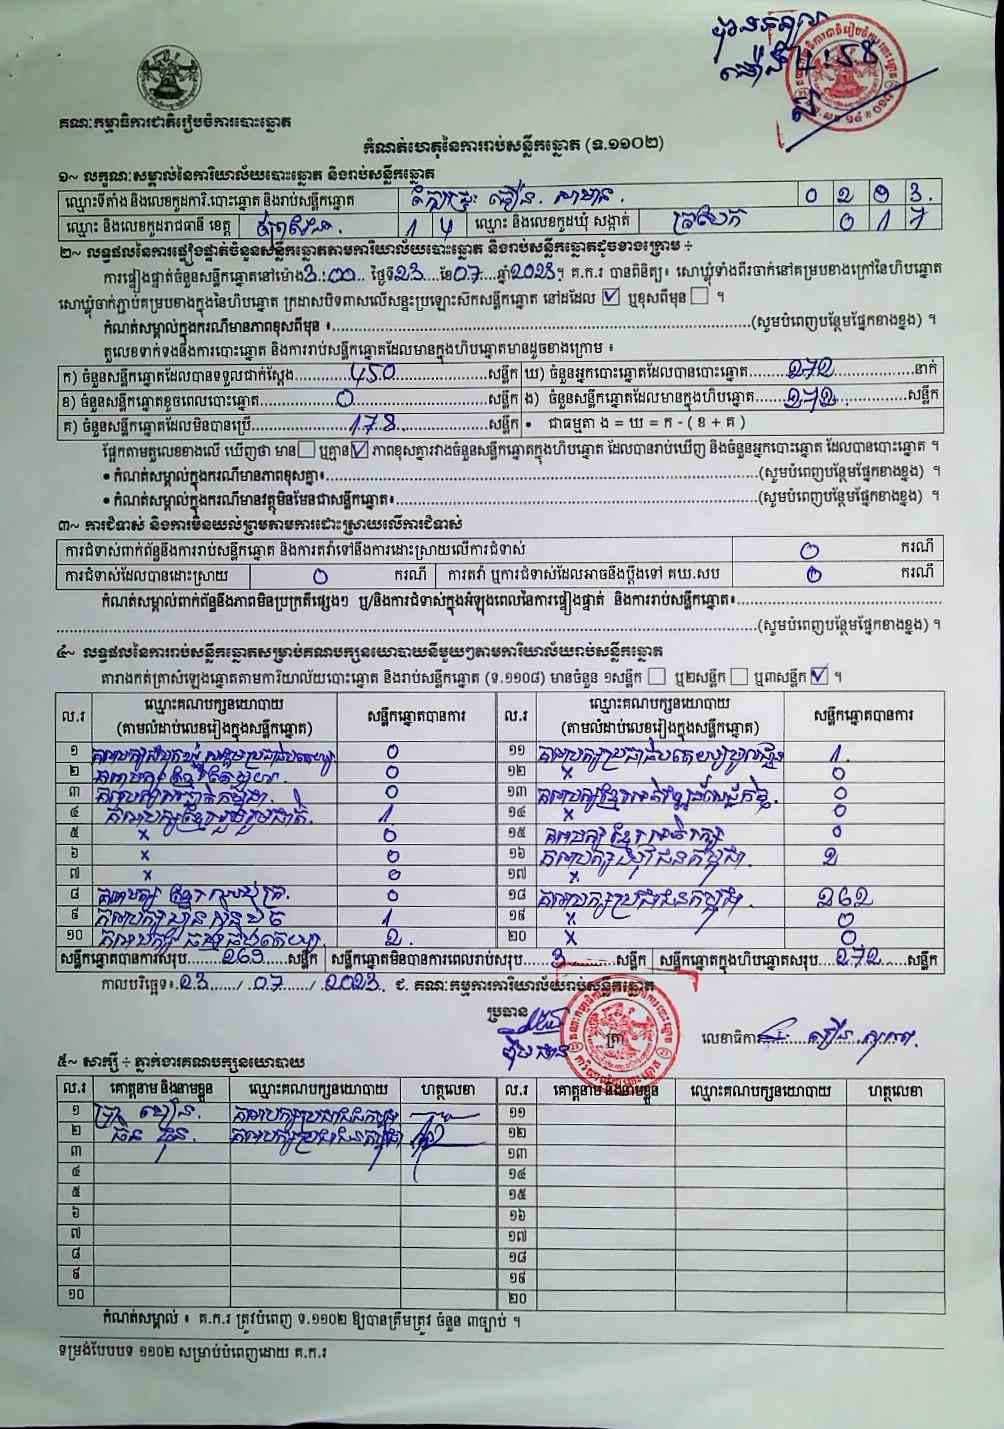 បានទទួល
ម៉ោង 4:58
គណៈកម្មាធិការជាតិរៀបចំការបោះឆ្នោត
កំណត់ហេតុនៃការរាប់សន្លឹកឆ្នោត (ទ.១១០២)
១~ លក្ខណៈសម្គាល់នៃការិយាល័យបោះឆ្នោត និងរាប់សន្លឹកឆ្នោត
ឈ្មោះទីតាំង និងលេខកូដការិ.បោះឆ្នោត និងរាប់សន្លឹកឆ្នោត 0 2 9 3
ឈ្មោះ និងលេខកូដរាជធានី ខេត្ត ព្រៃវែង 1 4 ឈ្មោះ និងលេខកូដឃុំ សង្កាត់ 0 1 7
២~ លទ្ធផលនៃការផ្ទៀងផ្ទាត់ចំនួនសន្លឹកឆ្នោតតាមការិយាល័យបោះឆ្នោត និងរាប់សន្លឹកឆ្នោតដូចខាងក្រោម ÷
ការផ្ទៀងផ្ទាត់ចំនួនសន្លឹកឆ្នោតនៅម៉ោង 3:00 ថ្ងៃទី 23 ខែ 07 ឆ្នាំ 2023។ គ.ក.រ បានពិនិត្យ៖ សោឃ្លុំទាំងពីរចាក់នៅគម្របខាងក្រៅនៃហិបឆ្នោត
សោឃ្លុំចាក់ភ្ជាប់គម្របខាងក្នុងនៃហិបឆ្នោត ក្រដាសបិទពាសលើសន្ទះប្រឡោះស៊កសន្លឹកឆ្នោត នៅដដែល ☑ ឬខុសពីមុន ☐ ។
កំណត់សម្គាល់ក្នុងករណីមានភាពខុសពីមុន ៖ (សូមបំពេញបន្ថែមផ្នែកខាងខ្នង) ។
តួលេខទាក់ទងនឹងការបោះឆ្នោត និងការរាប់សន្លឹកឆ្នោតដែលមានក្នុងហិបឆ្នោតមានដូចខាងក្រោម ៖
ក) ចំនួនសន្លឹកឆ្នោតដែលបានទទួលជាក់ស្ដែង 450 សន្លឹក ឃ) ចំនួនអ្នកបោះឆ្នោតដែលបានបោះឆ្នោត 272 នាក់
ខ) ចំនួនសន្លឹកឆ្នោតខូចពេលបោះឆ្នោត 0 សន្លឹក ង) ចំនួនសន្លឹកឆ្នោតដែលមានក្នុងហិបឆ្នោត 272 សន្លឹក
គ) ចំនួនសន្លឹកឆ្នោតដែលមិនបានប្រើ 178 សន្លឹក • ជាធម្មតា ង = ឃ = ក - ( ខ + គ )
ផ្អែកតាមតួលេខខាងលើ ឃើញថា មាន ☐ ឬគ្មាន ☑ ភាពខុសគ្នារវាងចំនួនសន្លឹកឆ្នោតក្នុងហិបឆ្នោត ដែលបានរាប់ឃើញ និងចំនួនអ្នកបោះឆ្នោត ដែលបានបោះឆ្នោត ។
• កំណត់សម្គាល់ក្នុងករណីមានភាពខុសគ្នា៖ (សូមបំពេញបន្ថែមផ្នែកខាងខ្នង) ។
• កំណត់សម្គាល់ក្នុងករណីមានវត្ថុមិនមែនជាសន្លឹកឆ្នោត៖ (សូមបំពេញបន្ថែមផ្នែកខាងខ្នង) ។
៣~ ការជំទាស់ និងការមិនយល់ព្រមតាមការដោះស្រាយលើការជំទាស់
ការជំទាស់ពាក់ព័ន្ធនឹងការរាប់សន្លឹកឆ្នោត និងការតវ៉ាទៅនឹងការដោះស្រាយលើការជំទាស់ 0 ករណី
ការជំទាស់ដែលបានដោះស្រាយ 0 ករណី ការតវ៉ា ឬការជំទាស់ដែលអាចនឹងប្ដឹងទៅ គឃ.សប 0 ករណី
កំណត់សម្គាល់ពាក់ព័ន្ធនឹងភាពមិនប្រក្រតីផ្សេងៗ ឬ/និងការជំទាស់ក្នុងអំឡុងពេលនៃការផ្ទៀងផ្ទាត់ និងការរាប់សន្លឹកឆ្នោត៖
(សូមបំពេញបន្ថែមផ្នែកខាងខ្នង) ។
៤~ លទ្ធផលនៃការរាប់សន្លឹកឆ្នោតសម្រាប់គណបក្សនយោបាយនីមួយៗតាមការិយាល័យរាប់សន្លឹកឆ្នោត
តារាងកត់ត្រាសំឡេងឆ្នោតតាមការិយាល័យបោះឆ្នោត និងរាប់សន្លឹកឆ្នោត (ទ.១១០៨) មានចំនួន ១សន្លឹក ☐ ឬ២សន្លឹក ☐ ឬ៣សន្លឹក ☑ ។
ល.រ ឈ្មោះគណបក្សនយោបាយ (តាមលំដាប់លេខរៀងក្នុងសន្លឹកឆ្នោត) សន្លឹកឆ្នោតបានការ ល.រ ឈ្មោះគណបក្សនយោបាយ (តាមលំដាប់លេខរៀងក្នុងសន្លឹកឆ្នោត) សន្លឹកឆ្នោតបានការ
១ 0 ១១ 1
២ 0 ១២ x 0
៣ 0 ១៣ 0
៤ គណបក្សខ្មែររួបរួមជាតិ 1 ១៤ x 0
៥ x 0 ១៥ គណបក្សខ្មែរអភិរក្ស 0
៦ x 0 ១៦ គណបក្សយុវជនកម្ពុជា 2
៧ x 0 ១៧ x
៨ 0 ១៨ គណបក្សប្រជាជនកម្ពុជា 262
៩ គណបក្សហ្វ៊ុនស៊ិនប៉ិច 1 ១៩ x 0
១០ 2 ២០ x 0
សន្លឹកឆ្នោតបានការសរុប 269 សន្លឹក សន្លឹកឆ្នោតមិនបានការពេលរាប់សរុប 3 សន្លឹក សន្លឹកឆ្នោតក្នុងហិបឆ្នោតសរុប 272 សន្លឹក
កាលបរិច្ឆេទ៖ 23 / 07 / 2023 ជ. គណៈកម្មការការិយាល័យរាប់សន្លឹកឆ្នោត
ប្រធាន ត្រា លេខាធិការ
៥~ សាក្សី ÷ ភ្នាក់ងារគណបក្សនយោបាយ
ល.រ គោត្តនាម និងនាមខ្លួន ឈ្មោះគណបក្សនយោបាយ ហត្ថលេខា ល.រ គោត្តនាម និងនាមខ្លួន ឈ្មោះគណបក្សនយោបាយ ហត្ថលេខា
១ គណបក្សប្រជាជនកម្ពុជា ១១
២ គណបក្សប្រជាជនកម្ពុជា ១២
៣ ១៣
៤ ១៤
៥ ១៥
៦ ១៦
៧ ១៧
៨ ១៨
៩ ១៩
១០ ២០
កំណត់សម្គាល់ ៖ គ.ក.រ ត្រូវបំពេញ ទ.១១០២ ឱ្យបានត្រឹមត្រូវ ចំនួន ៣ច្បាប់ ។
ទម្រង់បែបបទ ១១០២ សម្រាប់បំពេញដោយ គ.ក.រ